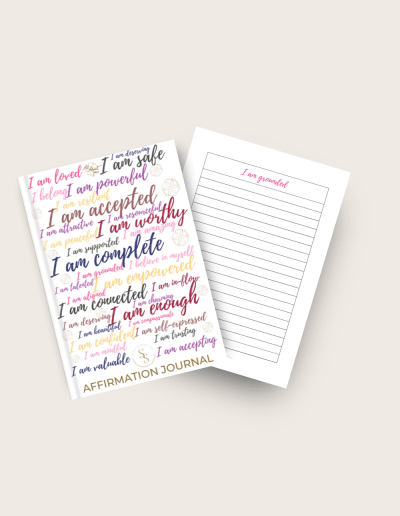 I am deserving
I am loved I am safe
I belong I am powerful
I am resilient
I am accepted
I am attractive I am resourceful
I am worthy
I am peaceful I am amazing
I am supported
I am complete
I am grounded I believe in myself
I am talented I am empowered
I am aligned I am in-flow
I am connected I am charming
I am deserving I am enough
I am beautiful I am compassionate
I am confident I am self-expressed
I am mindful I am trusting
I am valuable I am accepting
SS
AFFIRMATION JOURNAL
I am grounded